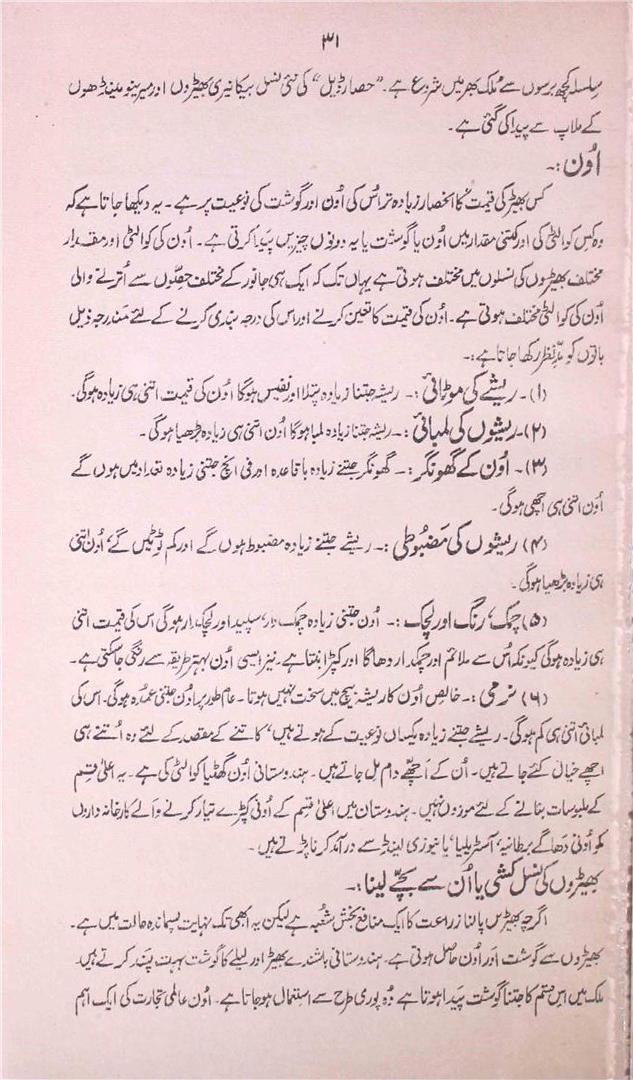 ۳۱
سلسلہ کچھ برسوں سے ملک بھر میں شروع ہے۔ ”حصار ڈیل“ کی نئی نسل بیکانیری بھیڑوں اور میرینو مینڈھوں
کے ملاپ سے پیدا کی گئی ہے۔
اُون :۔
کس بھیڑ کی قیمت کا انحصار زیادہ تر اس کی اُون اور گوشت کی نوعیت پر ہے۔ یہ دیکھا جاتا ہے کہ
وہ کس کوالٹی کی اور کتنی مقدار میں اُون یا گوشت یا یہ دونوں چیزیں پیدا کرتی ہے۔ اُون کی کوالٹی اور مقدار
مختلف بھیڑوں کی نسلوں میں مختلف ہوتی ہے یہاں تک کہ ایک ہی جانور کے مختلف حصّوں سے اُترنے والی
اُون کی کوالٹی مختلف ہوتی ہے۔ اُون کی قیمت کا تعین کرنے اور اس کی درجہ بندی کرنے کے لئے مندرجہ ذیل
باتوں کو مدِّنظر رکھا جاتا ہے :۔
(۱)۔ ریشے کی موٹائی :۔ ریشہ جتنا زیادہ پتلا اور نفیس ہوگا اُون کی قیمت اتنی ہی زیادہ ہوگی۔
(۲)۔ ریشوں کی لمبائی :۔ ریشہ جتنا زیادہ لمبا ہوگا اُون اتنی ہی زیادہ بڑھیا ہوگی۔
(۳)۔ اُون کے گھونگر :۔ گھونگر جتنے زیادہ باقاعدہ اور فی انچ جتنی زیادہ تعداد میں ہوں گے
اُون اتنی ہی اچھی ہوگی۔
(۴) ریشوں کی مضبُوطی :۔ ریشے جتنے زیادہ مضبوط ہوں گے اور کم ٹوٹیں گے، اُون اتنی
ہی زیادہ بڑھیا ہوگی۔
(۵) چمک، رنگ اور لچک :۔ اُون جتنی زیادہ چمک دار، سپید اور لچک دار ہوگی اس کی قیمت اتنی
ہی زیادہ ہوگی کیونکہ اُس سے ملائم اور چمکدار دھاگا اور کپڑا بنتا ہے۔ نیز ایسی اُون بہتر طریقہ سے رنگی جاسکتی ہے۔
(۶) نرمی :۔ خالص اُون کا ریشہ بیچ میں سخت نہیں ہوتا۔ عام طور پر اُون جتنی عمدہ ہوگی۔ اس کی
لمبائی اتنی ہی کم ہوگی۔ ریشے جتنے زیادہ یکساں نوعیت کے ہوتے ہیں، کاتنے کے مقصد کے لئے وہ اُتنے ہی
اچھے خیال کئے جاتے ہیں۔ اُن کے اچھے دام مل جاتے ہیں۔ ہندوستانی اُون گھٹیا کوالٹی کی ہے۔ یہ اعلیٰ قسم
کے ملبوسات بنانے کے لئے موزوں نہیں۔ ہندوستان میں اعلیٰ قسم کے اُونی کپڑے تیار کرنے والے کارخانہ داروں
کو اُونی دھاگے برطانیہ، آسٹریلیا، یا نیوزی لینڈ سے درآمد کرنا پڑتے ہیں۔
بھیڑوں کی نسل کشی یا اُن سے بچّے لینا :۔
اگرچہ بھیڑیں پالنا زراعت کا ایک منافع بخش شعبہ ہے لیکن یہ ابھی تک نہایت پسماندہ حالت میں ہے۔
بھیڑوں سے گوشت اور اُون حاصل ہوتی ہے۔ ہندوستانی باشندے بھیڑ اور لیلے کا گوشت بہت پسند کرتے ہیں۔
ملک میں اس قسم کا جتنا گوشت پیدا ہوتا ہے وُہ پوری طرح سے استعمال ہوجاتا ہے۔ اُون عالمی تجارت کی ایک اہم